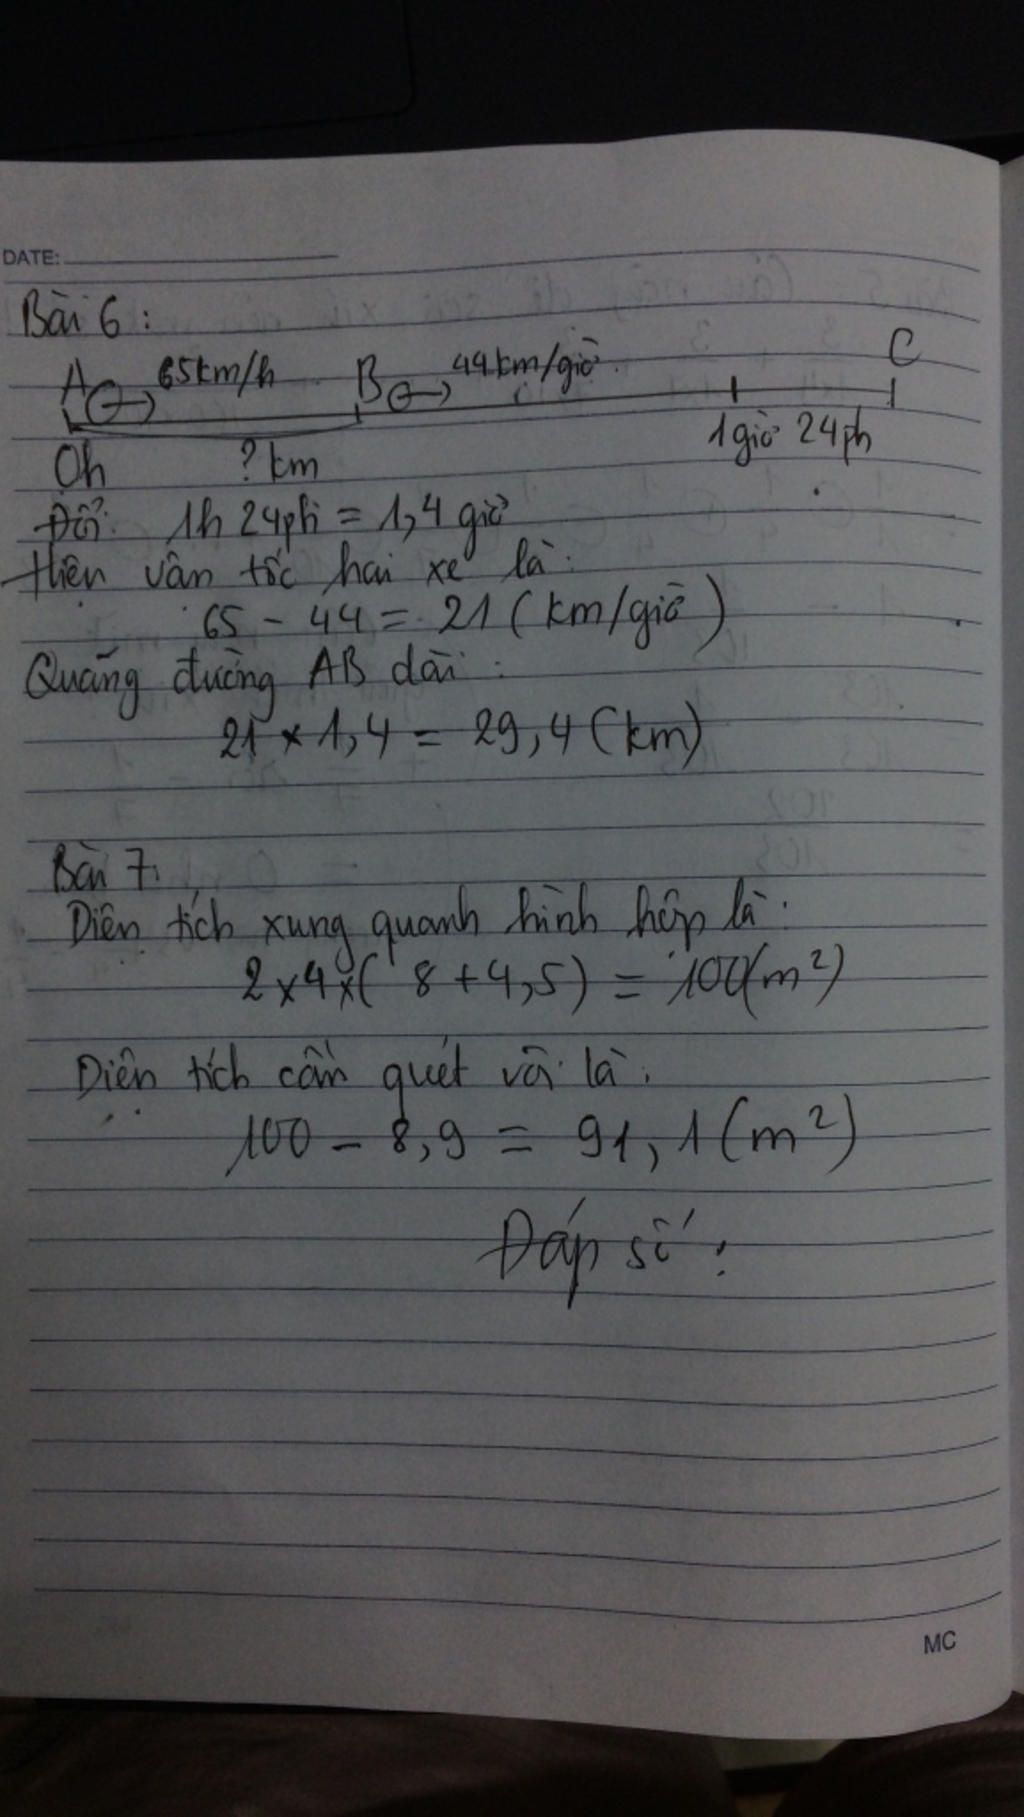 DATE:
Bài 6:
A 65km/h B 44km/giờ C
0h ?km 1giờ 24ph
Đổi: 1h 24ph = 1,4 giờ
Hiệu vận tốc hai xe là:
65 - 44 = 21 (km/giờ)
Quãng đường AB dài:
21 x 1,4 = 29,4 (km)
Bài 7:
Diện tích xung quanh hình hộp là:
2 x 4 x ( 8 + 4,5) = 100(m²)
Diện tích cần quét vôi là:
100 - 8,9 = 91,1 (m²)
Đáp số:
MC